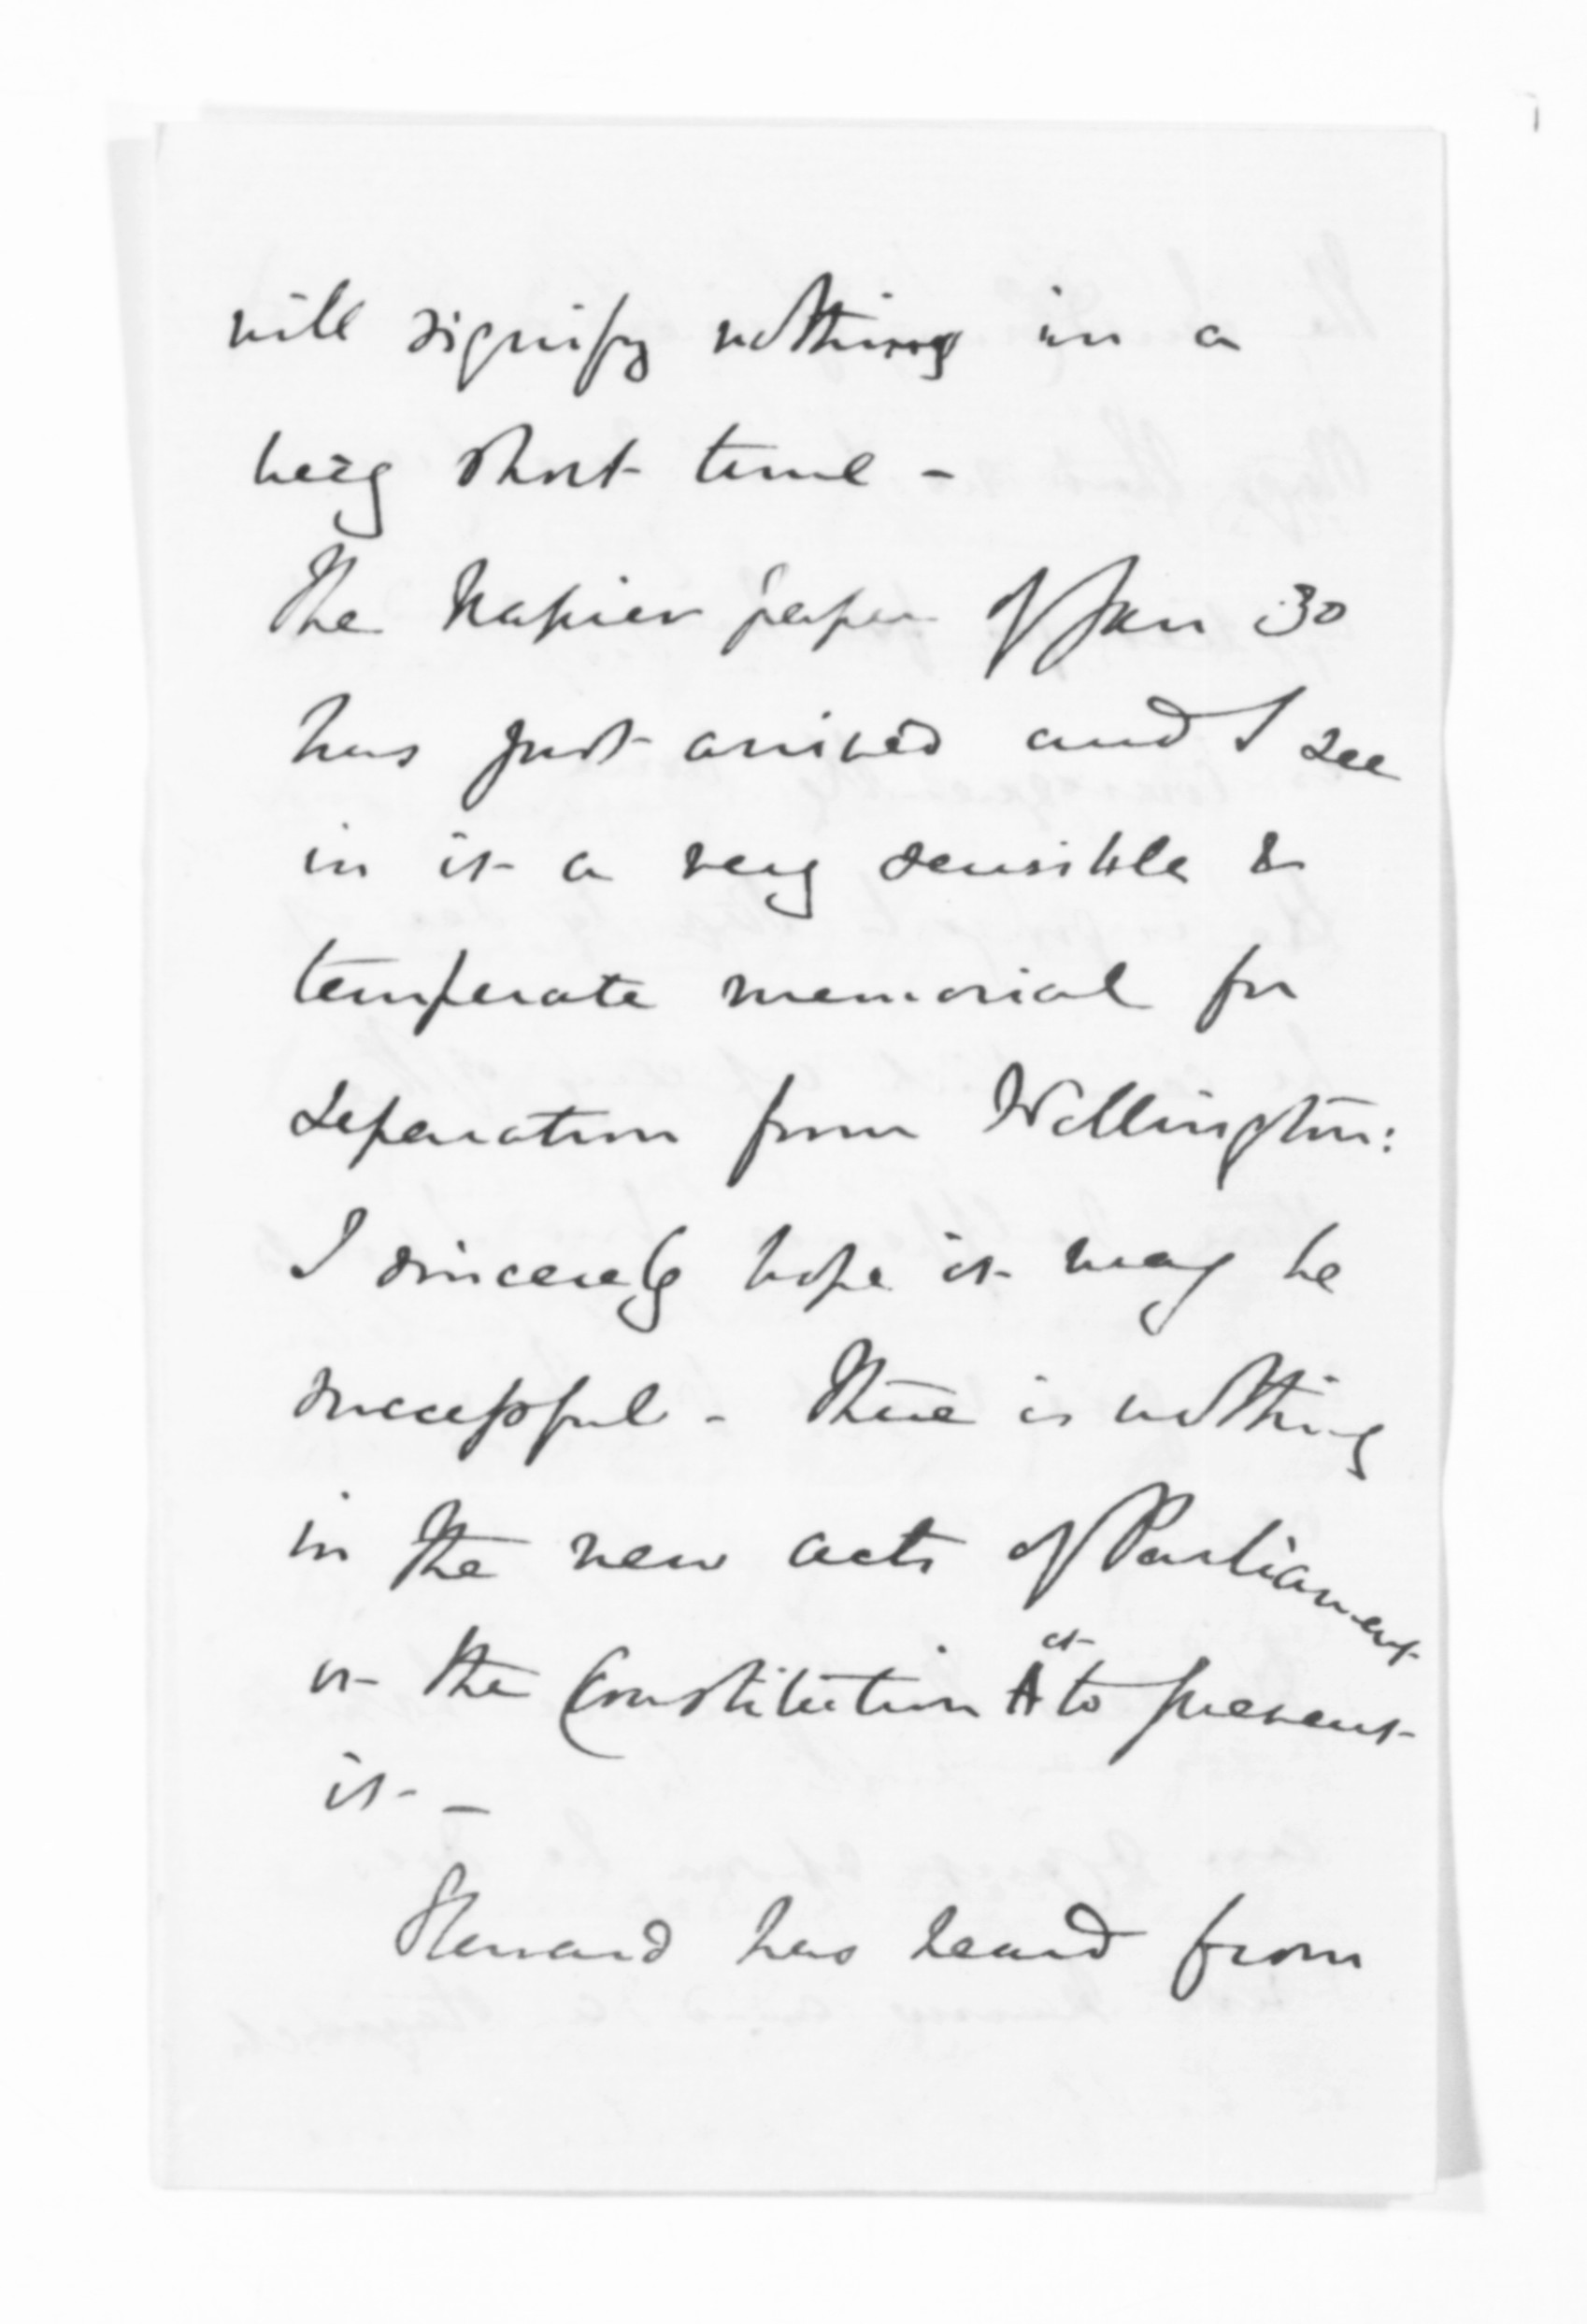 will signify nothing in a
very short time -
The Napier paper of Jan 30
has just arrived and I see
in it a very sensible &
temperate memorial for
separation from Wellington:
I sincerely hope it may be
successful - There is nothing
in the new acts of Parliament
or the Constitution Act to prevent
it -
has heard from